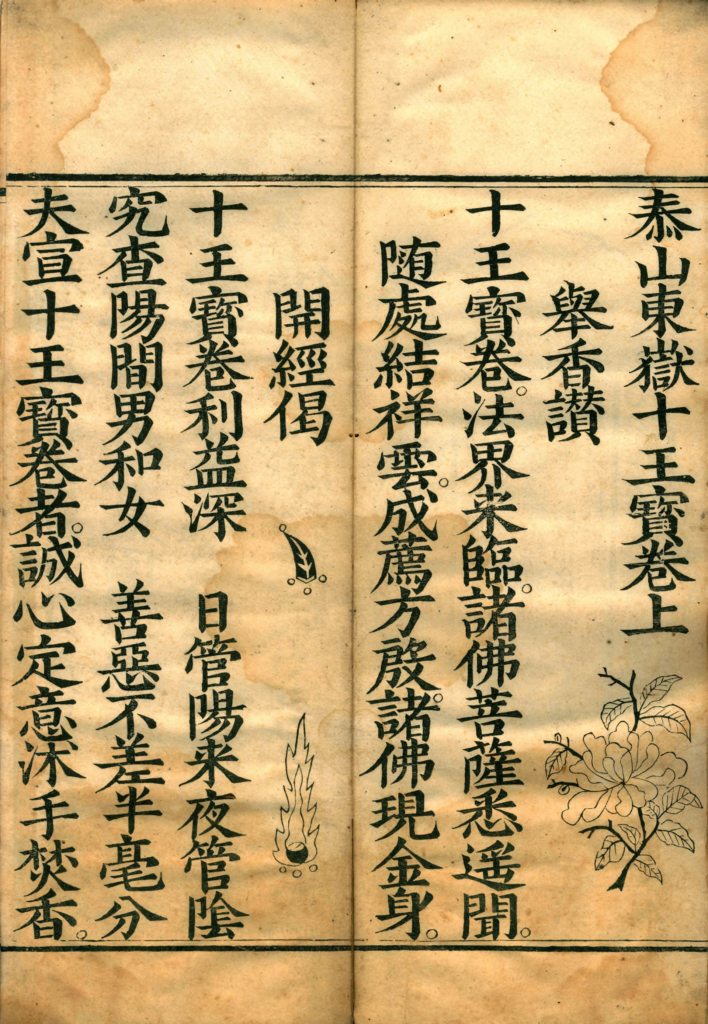 泰山東嶽十王寶卷上
舉香讃
十王寶卷。法界来臨。諸佛菩薩悉遥聞。
随處結祥雲。成薦方殷。諸佛現金身。
開經偈
十王寶卷利益深　日管陽来夜管陰
究查陽間男和女　善惡不差半毫分
夫宣十王寶卷者。誠心定意沐手焚香。